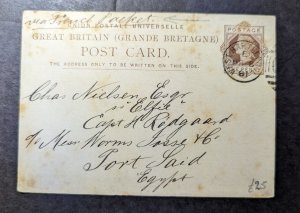 via French Packet
UNION POSTALE UNIVERSELLE
GREAT BRITAIN (GRANDE BRETAGNE)
POST CARD.
THE ADDRESS ONLY TO BE WRITTEN ON THIS SIDE.
POSTAGE
Chas Nielsen Esqr
ss "Elfie"
Capt H. Rodgaard
c/o Messr Worms Josse & Co
Port Said
Egypt
£25